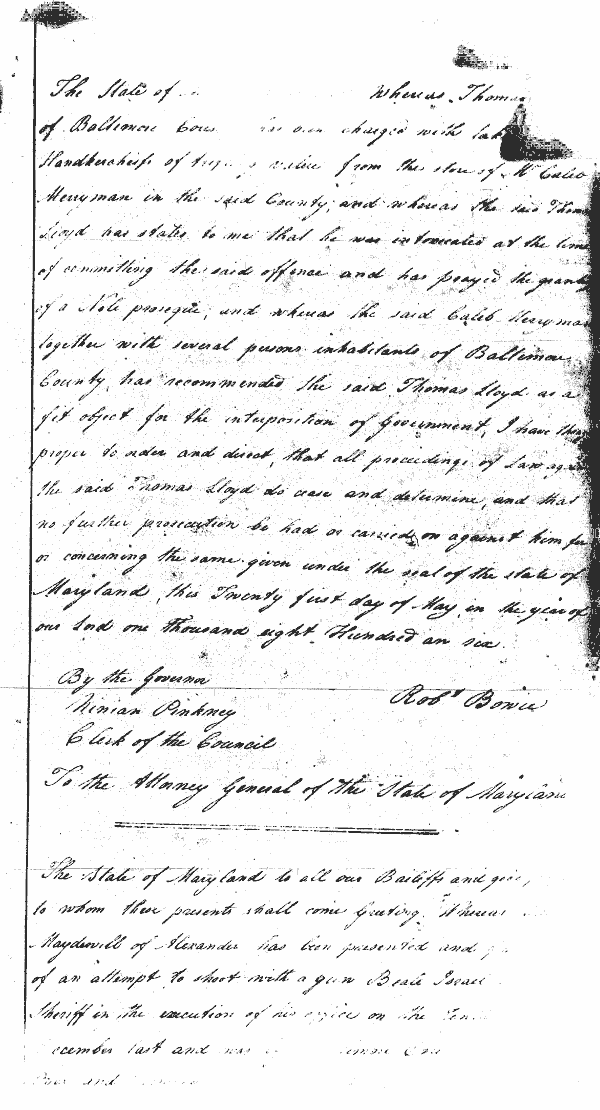 The State of Whereas Thomas
of Baltimore has been charged with
Handkerchiefs of value from the store of Mr Caleb
Merryman in the said County; and whereas the said Thom
Lloyd has stated to me that he was intoxicated at the time
of committing the said offence and has prayed the granting
of a Nole proseque; and whereas the said Caleb Merryman
together with several persons inhabitants of Baltimore
County has recommended the said Thomas Lloyd as a
fit object for the interposition of Government, I have thou
proper to order and direct, that all proceedings of Law aga
the said Thomas Lloyd do cease and determine, and that
no further prosecution be had or carried on against him for
or concerning the same given under the seal of the state of
Maryland, this Twenty first day of May in the year of
our Lord one thousand eight Hundred an six.
By the Governor
Ninian Pinkney Robt Bowie
Clerk of the Council
To the Attorney General of the State of Maryland
The State of Maryland to all our Bailiffs and
to whom these presents shall come Greeting. Whereas
Maydewill of Alexander has been presented and
of an attempt to shoot with a gun Beale Israel
Sheriff in the execution of his office on the
ecember last and was
and